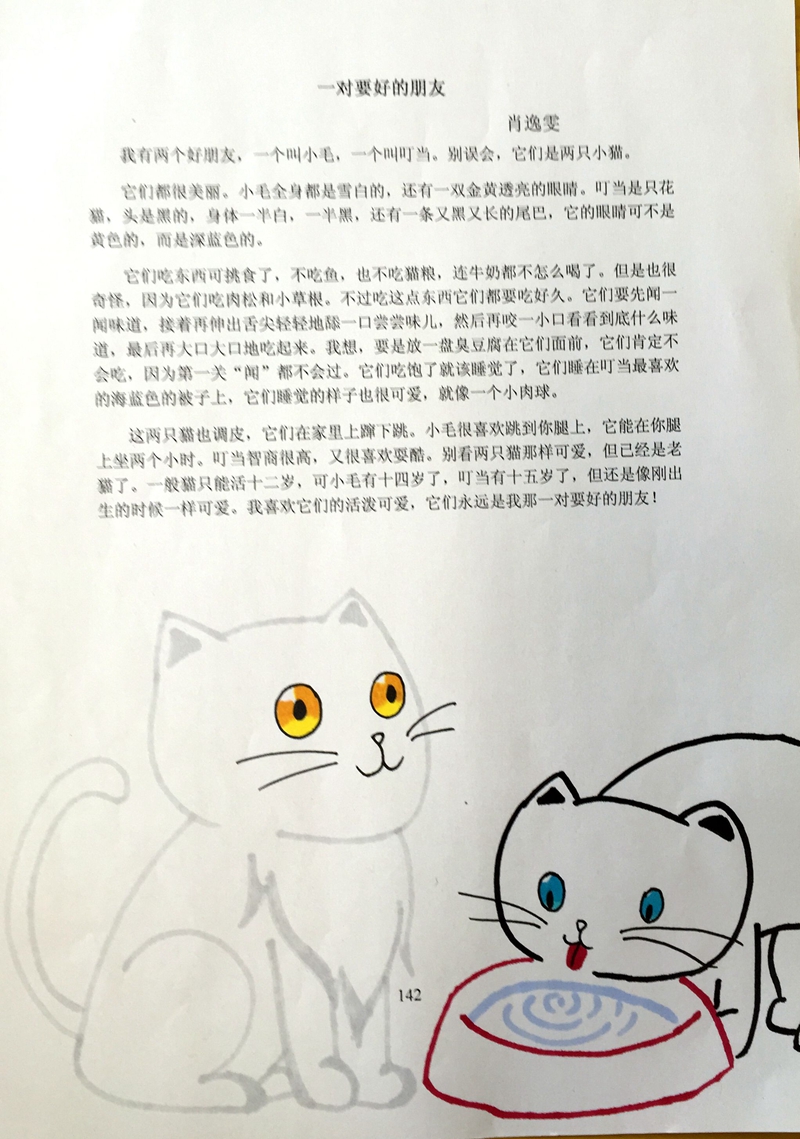 一对要好的朋友
肖逸雯
我有两个好朋友，一个叫小毛，一个叫叮当。别误会，它们是两只小猫。
它们都很美丽。小毛全身都是雪白的，还有一双金黄透亮的眼睛。叮当是只花
猫，头是黑的，身体一半白，一半黑，还有一条又黑又长的尾巴，它的眼睛可不是
黄色的，而是深蓝色的。
它们吃东西可挑食了，不吃鱼，也不吃猫粮，连牛奶都不怎么喝了。但是也很
奇怪，因为它们吃肉松和小草根。不过吃这点东西它们都要吃好久。它们要先闻一
闻味道，接着再伸出舌尖轻轻地舔一口尝尝味儿，然后再咬一小口看看到底什么味
道，最后再大口大口地吃起来。我想，要是放一盘臭豆腐在它们面前，它们肯定不
会吃，因为第一关“闻”都不会过。它们吃饱了就该睡觉了，它们睡在叮当最喜欢
的海蓝色的被子上，它们睡觉的样子也很可爱，就像一个小肉球。
这两只猫也调皮，它们在家里上蹿下跳。小毛很喜欢跳到你腿上，它能在你腿
上坐两个小时。叮当智商很高，又很喜欢耍酷。别看两只猫那样可爱，但已经是老
猫了。一般猫只能活十二岁，可小毛有十四岁了，叮当有十五岁了，但还是像刚出
生的时候一样可爱。我喜欢它们的活泼可爱，它们永远是我那一对要好的朋友！
142